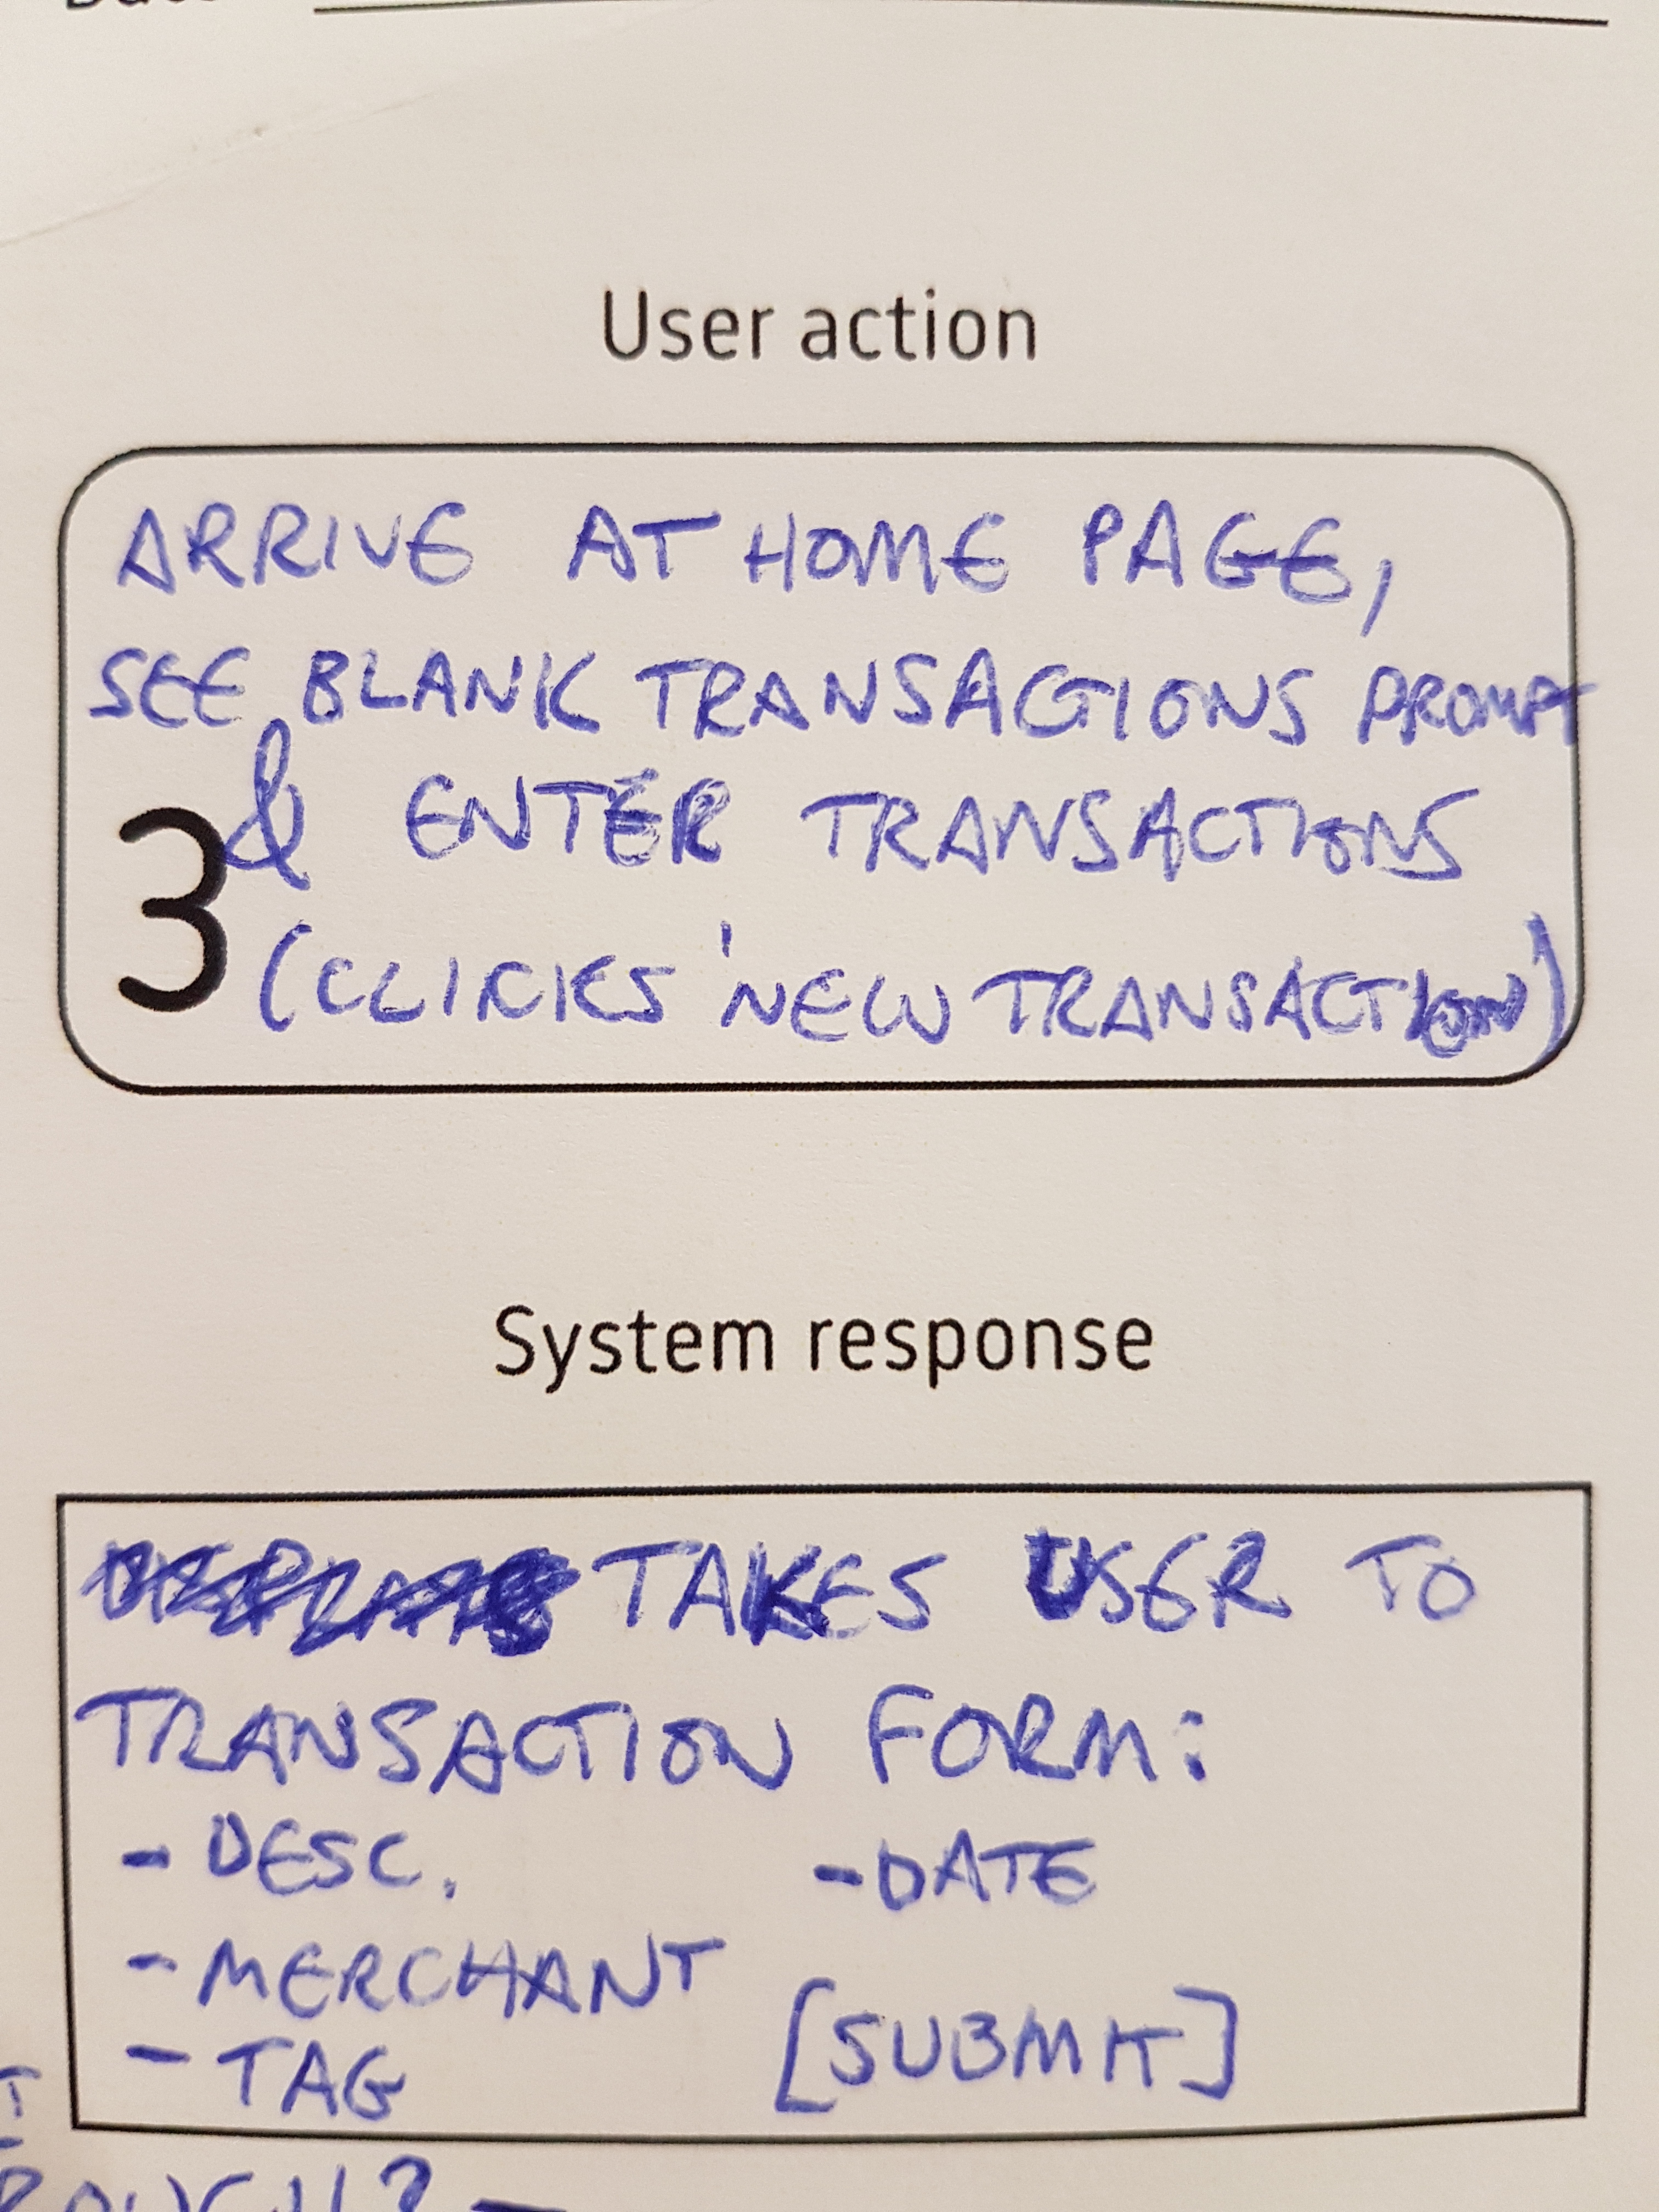 User action
ARRIVE AT HOME PAGE,
SEE BLANK TRANSACTIONS PROMPT
& ENTER TRANSACTIONS
3
(CLICKS 'NEW TRANSACTION)
System response
TAKES USER TO
TRANSACTION FORM:
- DESC. - DATE
- MERCHANT
[SUBMIT]
- TAG